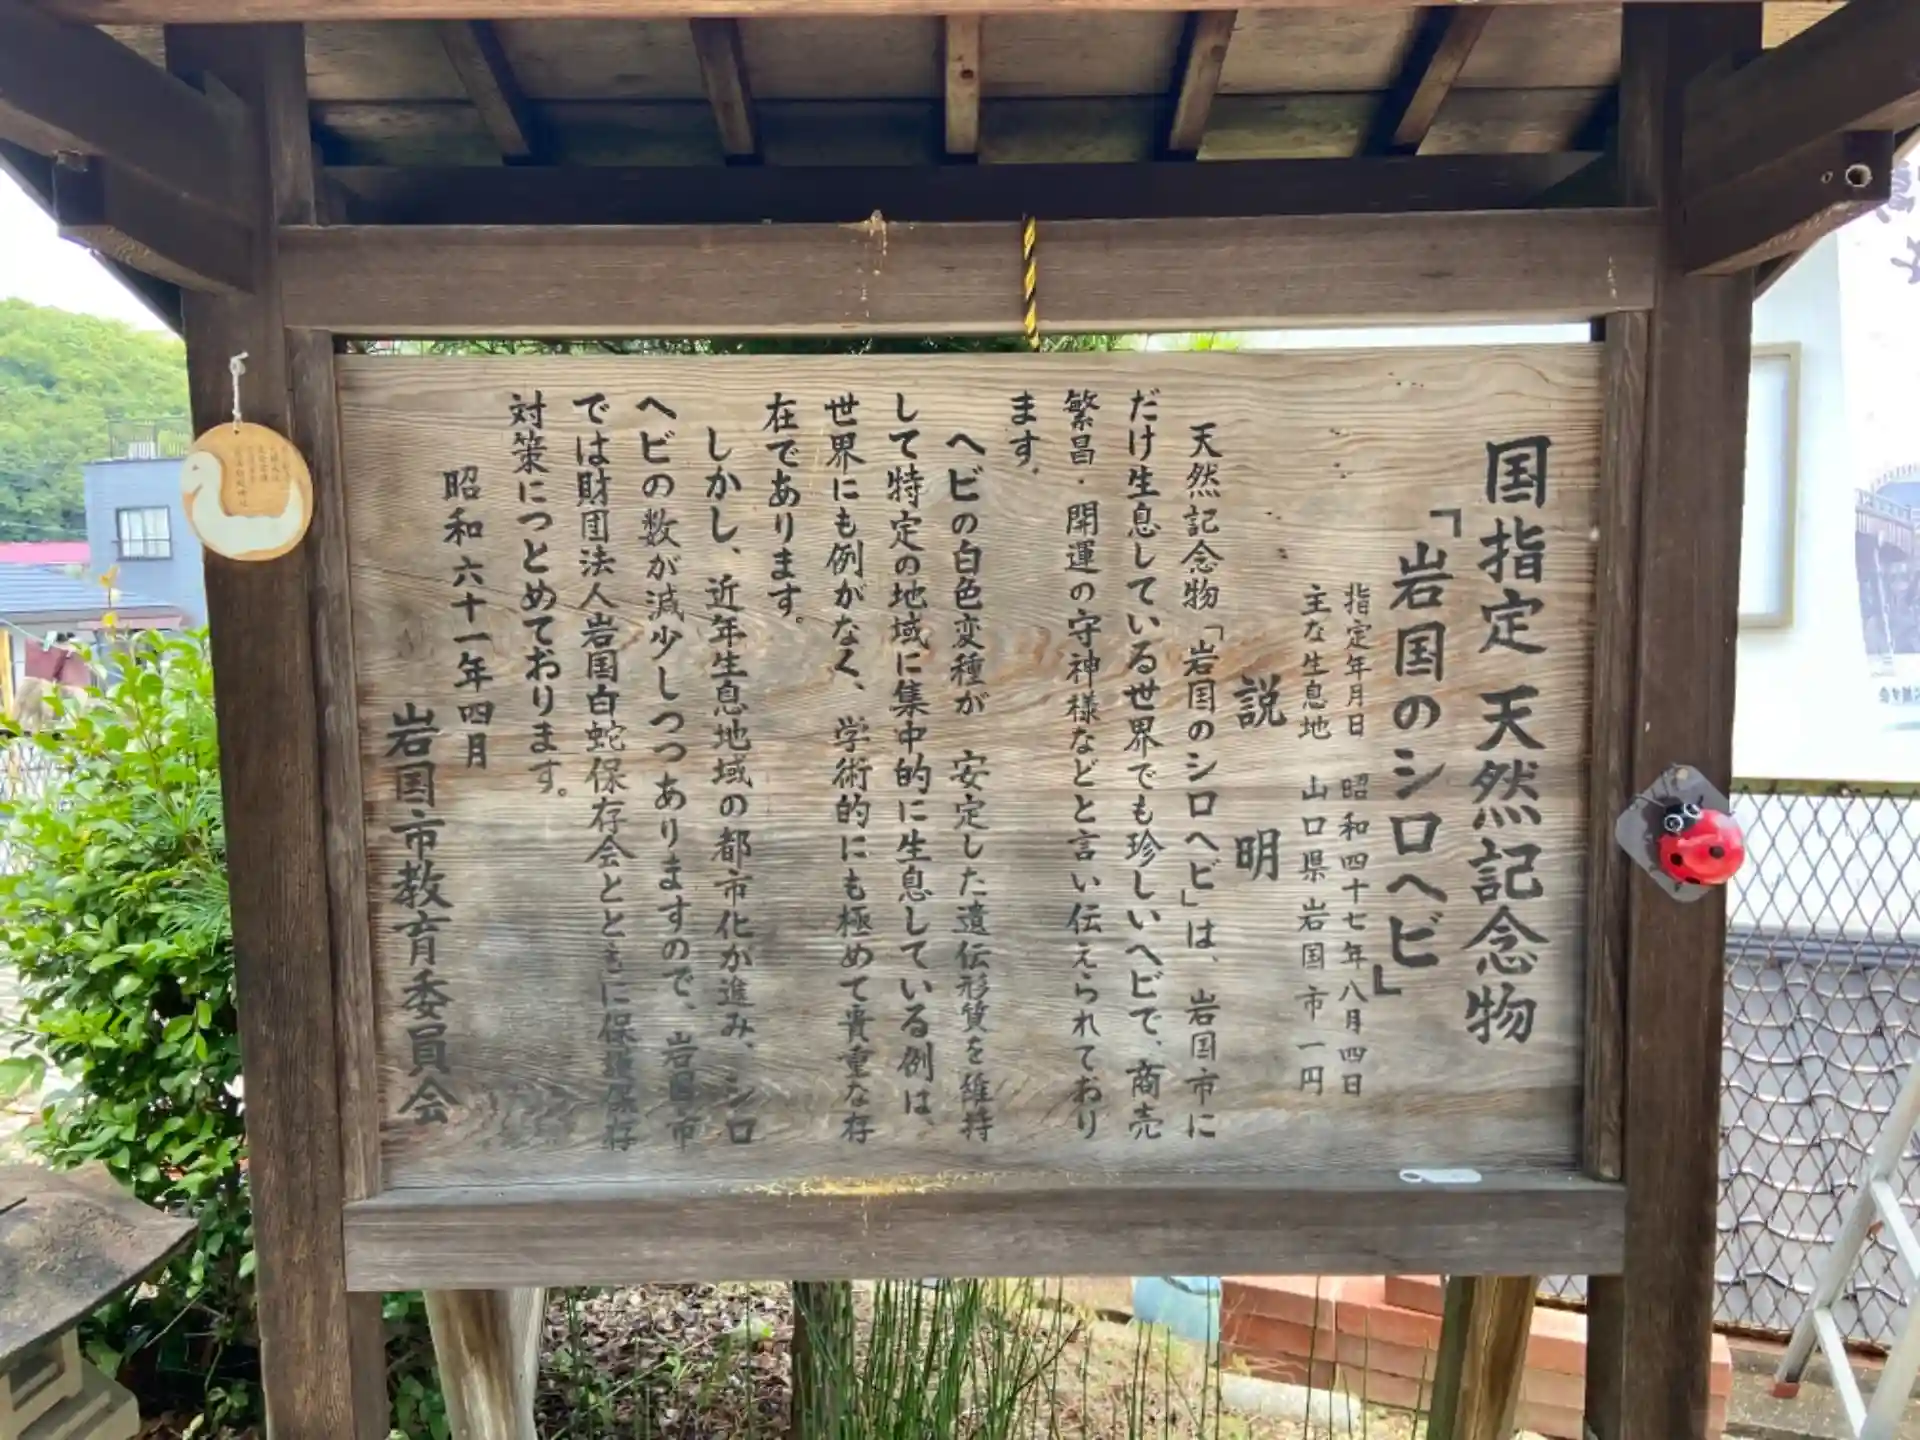 国指定 天然記念物
「岩国のシロヘビ」
指定年月日 昭和四十七年八月四日
主な生息地 山口県岩国市一円
説明
天然記念物「岩国のシロヘビ」は、岩国市に
だけ生息している世界でも珍しいヘビで、商売
繁昌・開運の守神様などと言い伝えられており
ます。
ヘビの白色変種が 安定した遺伝形質を維持
して特定の地域に集中的に生息している例は、
世界にも例がなく、学術的にも極めて貴重な存
在であります。
しかし、近年生息地域の都市化が進み、シロ
ヘビの数が減少しつつありますので、岩国市
では財団法人岩国白蛇保存会とともに保護保存
対策につとめております。
昭和六十一年四月
岩国市教育委員会